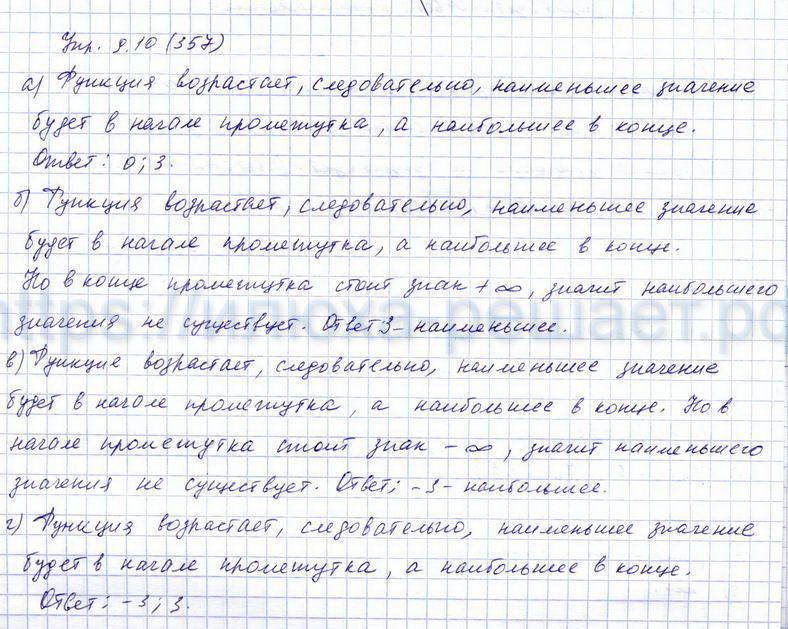 Упр. 9.10 (357)
а) Функция возрастает, следовательно, наименьшее значение
будет в начале промежутка, а наибольшее в конце.
Ответ: 0; 3.
б) Функция возрастает, следовательно, наименьшее значение
будет в начале промежутка, а наибольшее в конце.
Но в конце промежутка стоит знак +∞, значит наибольшего
значения не существует. Ответ 3 – наименьшее.
в) Функцие возрастает, следовательно, наименьшее значение
будет в начале промежутка, а наибольшее в конце. Но в
начале промежутка стоит знак -∞, значит наименьшего
значения не существует. Ответ: -3 - наибольшее.
г) Функция возрастает, следовательно, наименьшее значение
будет в начале промежутка, а наибольшее в конце.
Ответ: -3; 3.